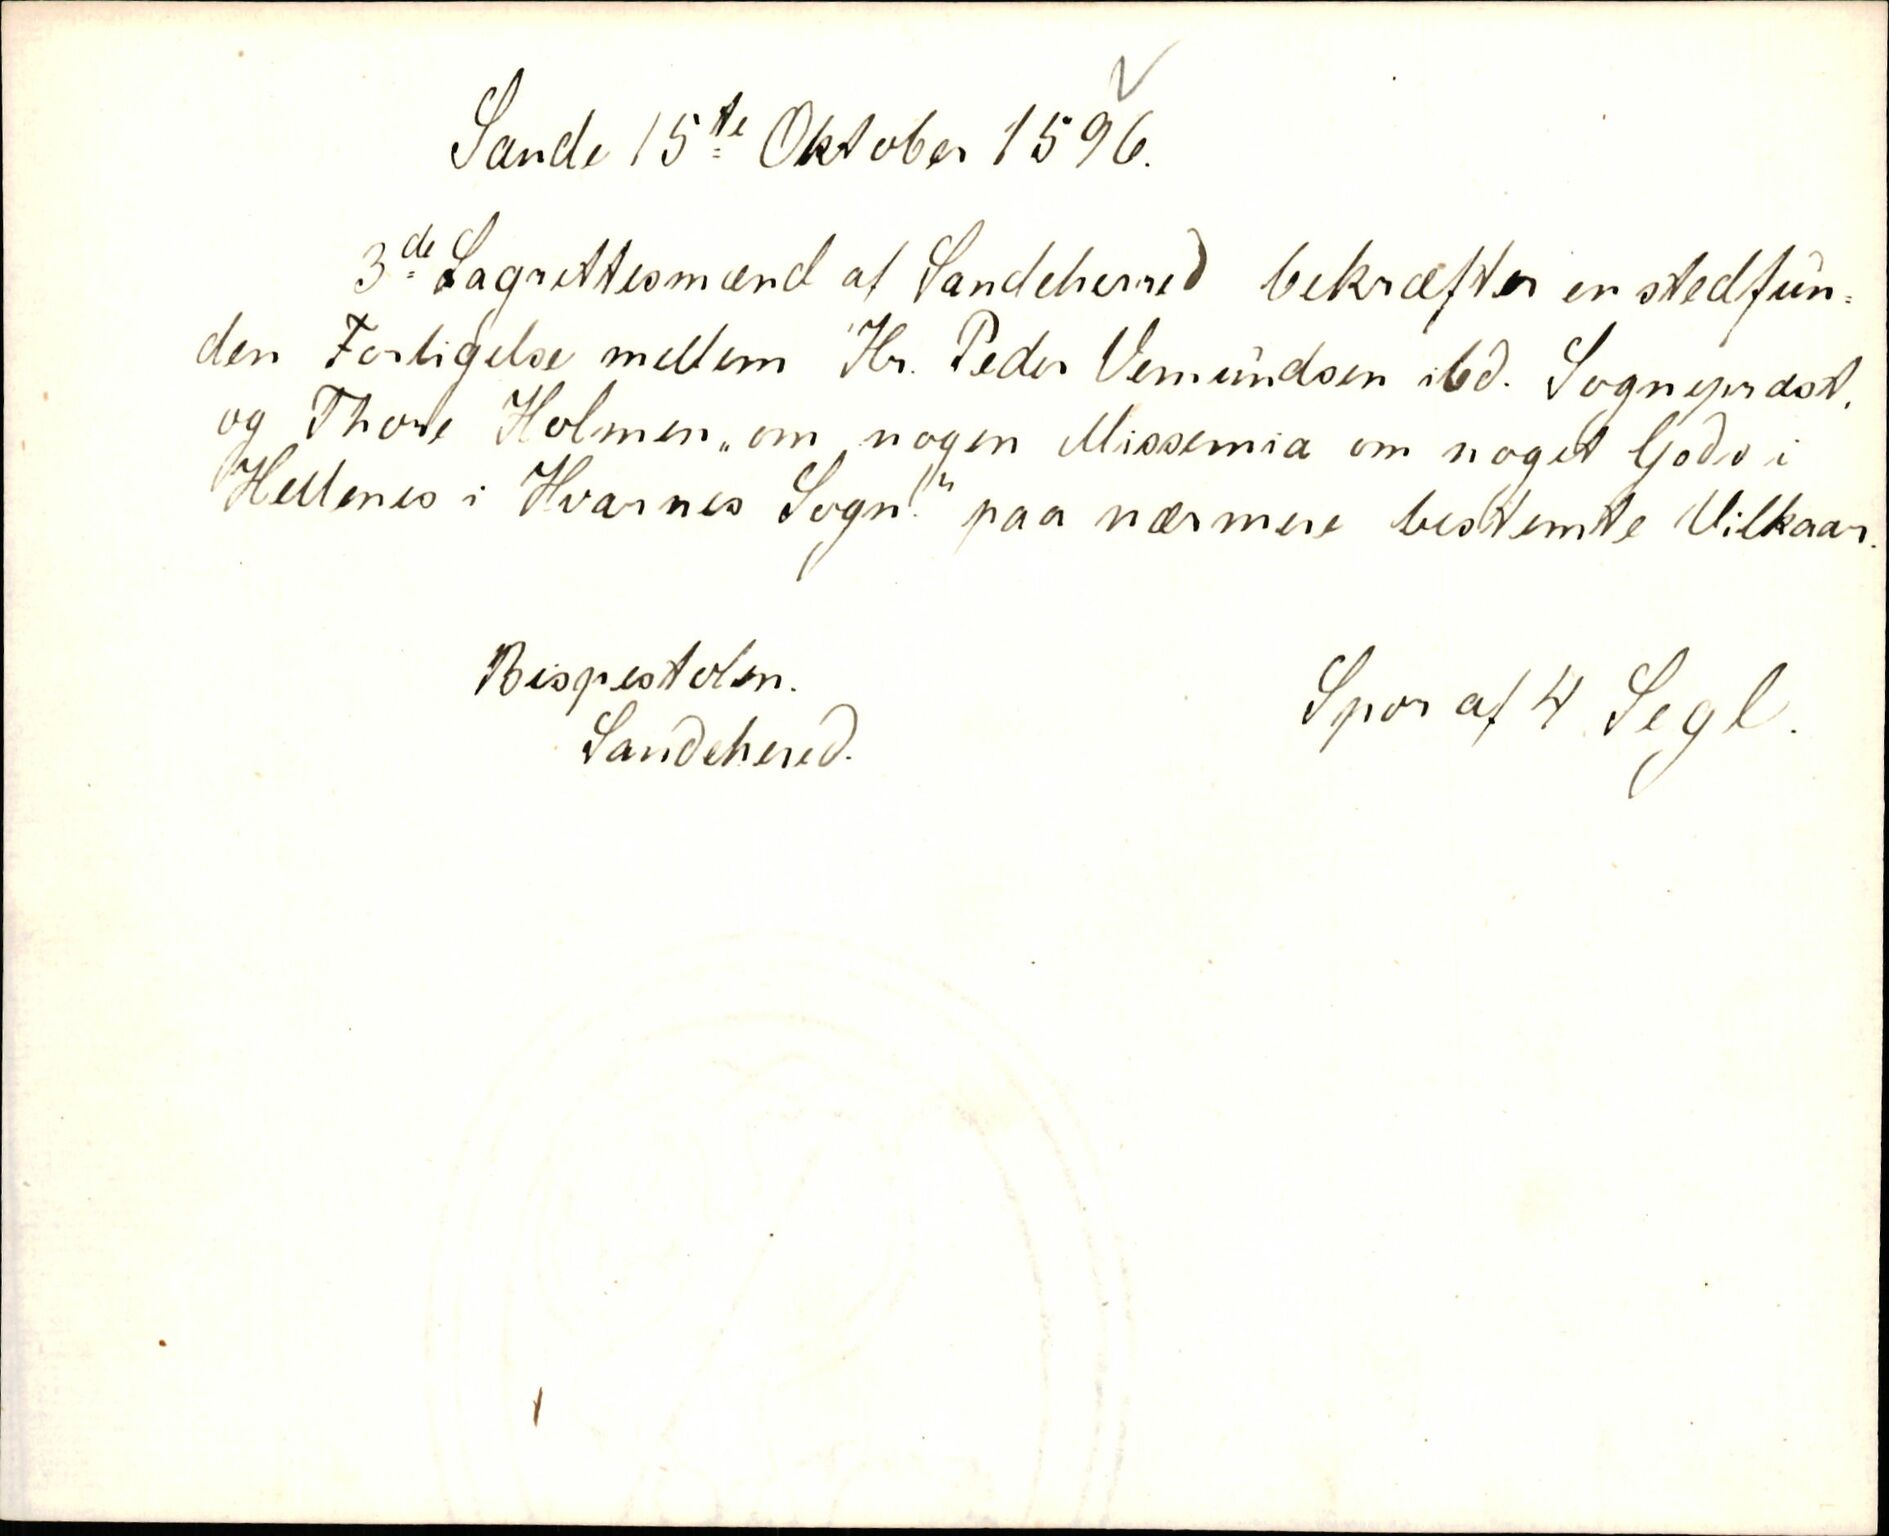 Sande 15te Oktober 1596.
3de Lagrettesmænd af Sandeherred bekræfter en stedfun-
den Forligelse mellem Hr. Peder Vemundsen ibd. Sognepræst,
og Thore Holmen „om nogen Missemia om noget Gods i
Hellenes i Hvarnes Sogn“ paa nærmere bestemte Vilkaar.
Bispestolen.
Sandehered.
Spor af 4 Segl.